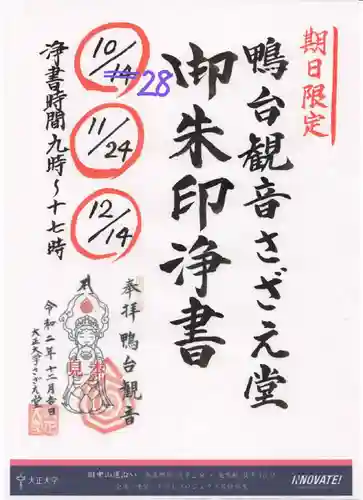 期日限定
鴨台観音さざえ堂
御朱印浄書
10/14 28
11/24
12/14
浄書時間 九時〜十七時
奉拝 鴨台観音
見本
令和二年十二月吉日
大正大学さざえ堂
大正大学
旧中山道沿い
INNOVATE!